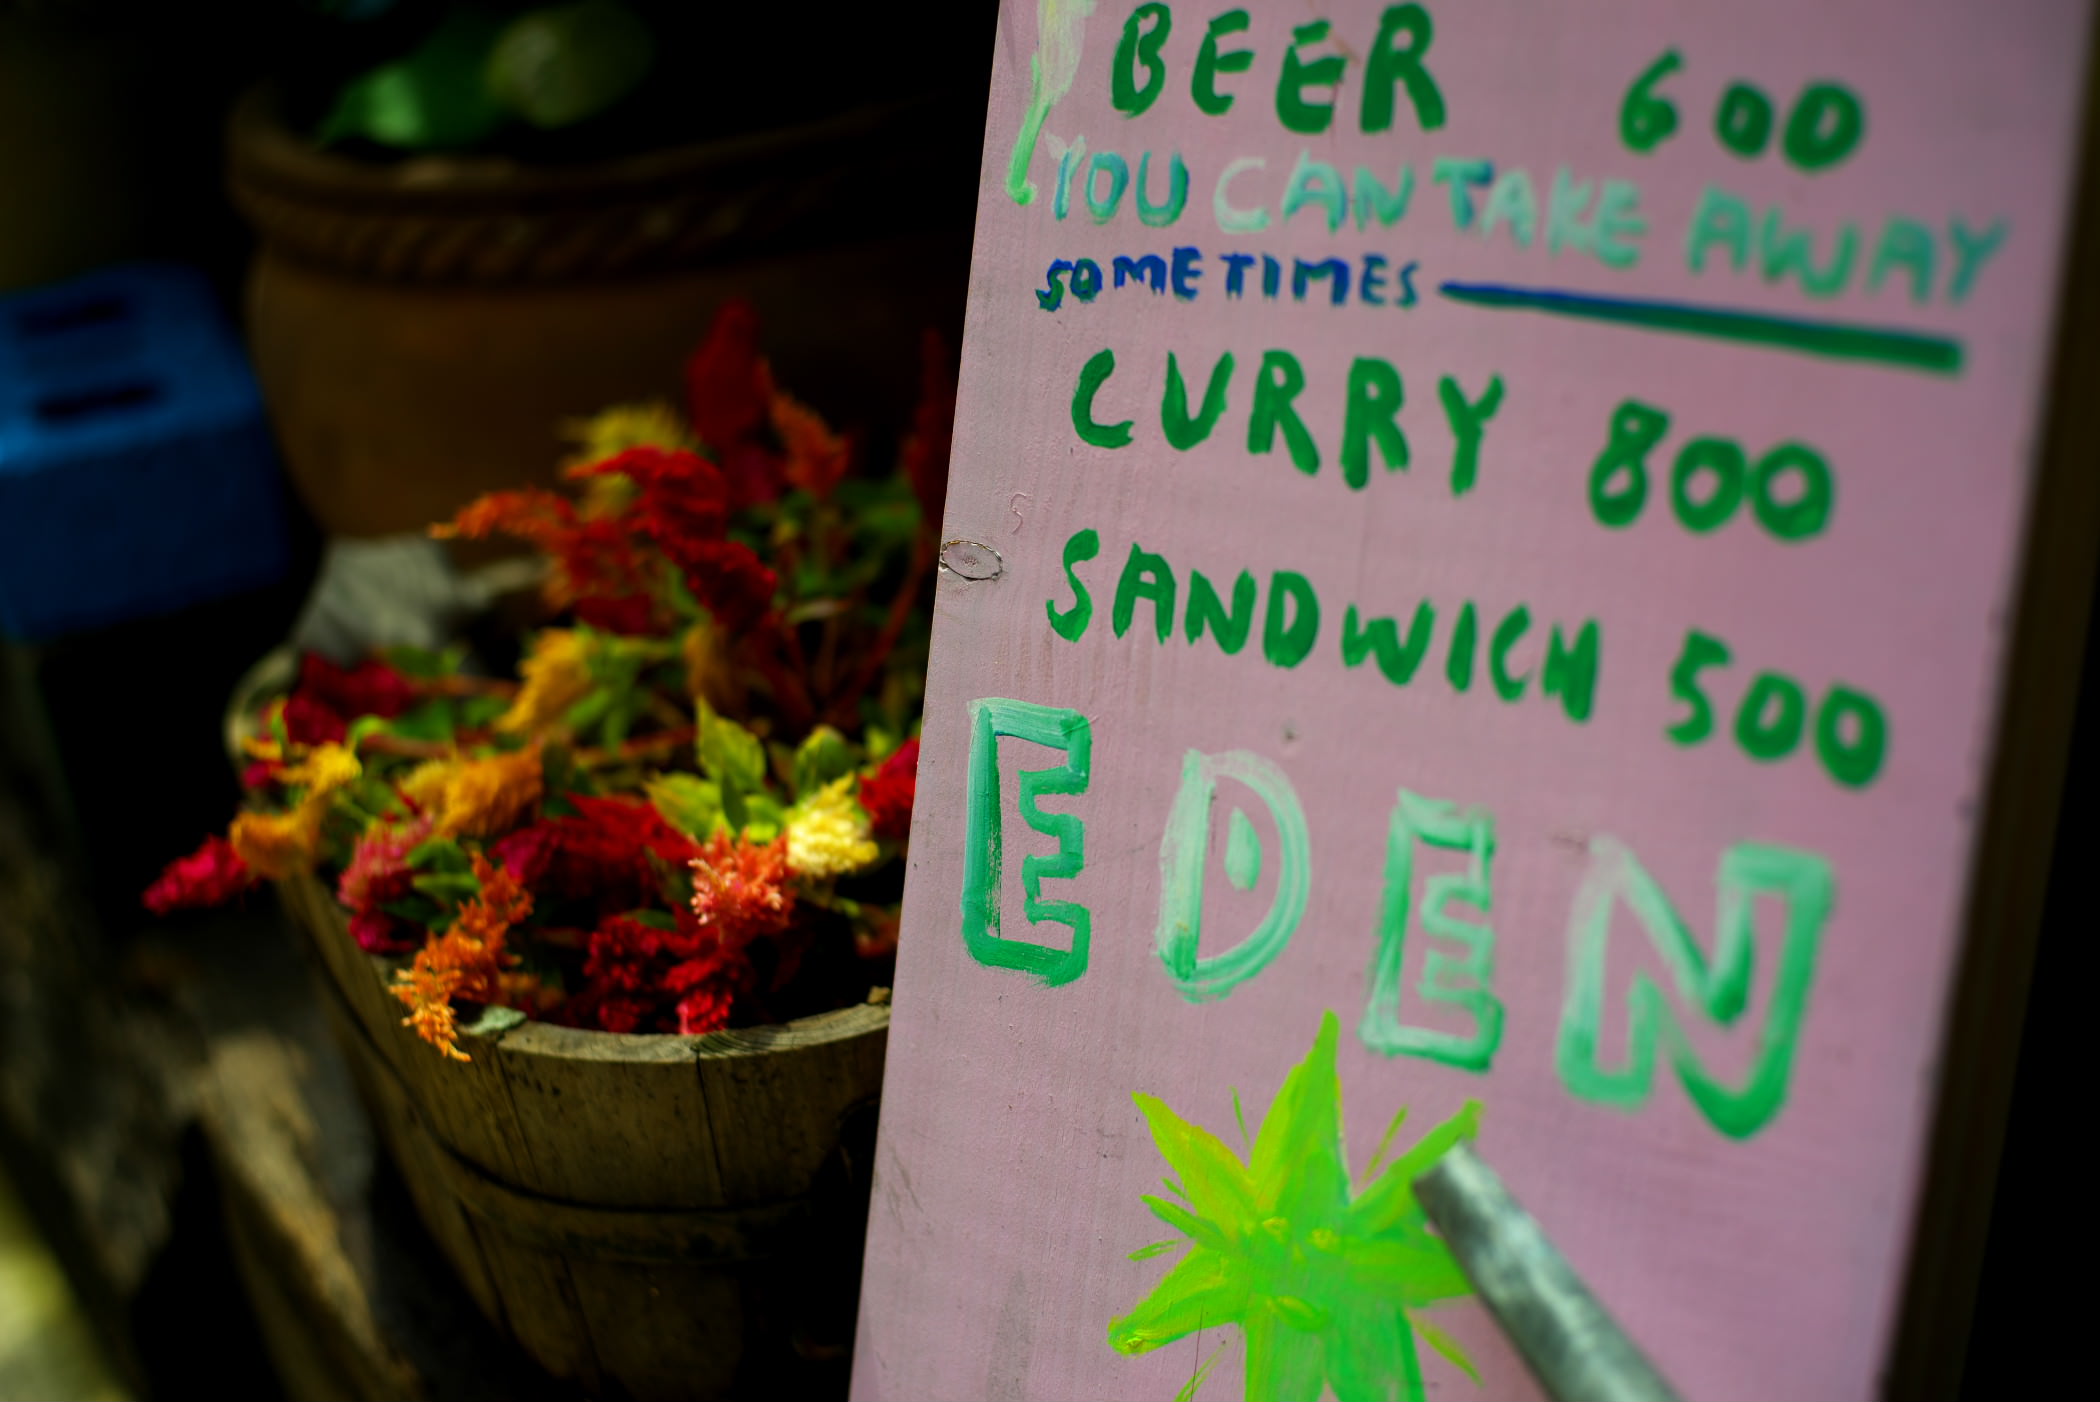 BEER 600
YOU CAN TAKE AWAY
SOMETIMES
CURRY 800
SANDWICH 500
EDEN